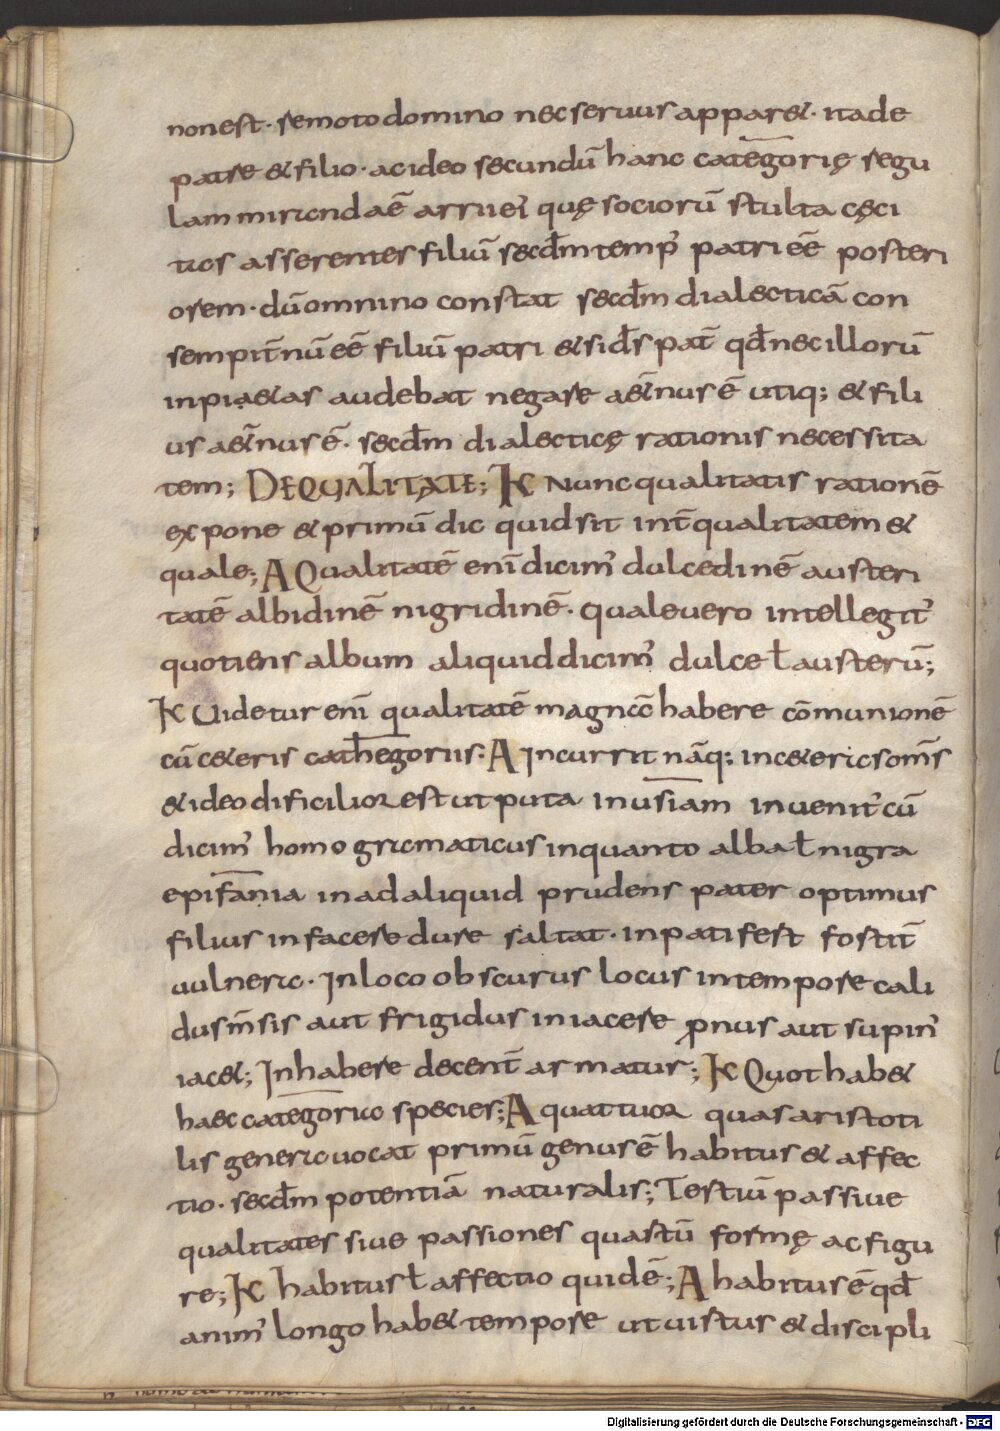 non est· remoto domino nec seruus apparet· ita de
patre & filio· ac ideo secundū hanc categorię regu
lam miranda ē arrii ei' quę sociorū stulta cęci
tas asserentes filiū secđm temp' patri eē posteri
orem· dū omnino constat secđm dialecticā con
sempit̄nū eē filiū patri & si đs pat̄ qđ nec illorū
inpiaetas audebat negare aet̄nus ē utiq; & fili
us aet̄nus ē· secđm dialecticę rationis necessita
tem; DE QUALITATE; K Nunc qualitatis rationē
expone & primū dic quid sit int̄ qualitatem &
quale; A Qualitatē enī dicim' dulcedinē austeri
tatē albidinē nigridinē· quale uero intellegit'
quotiens album aliquid dicim' dulce ł austerū;
K Uidetur enī qualitatē magnā habere cōmunionē
cū ceteris cathegoriis· A Incurrit nāq; in ceteras om̄s
& ideo dificilior est ut puta in usiam inuenit' cū
dicim' homo gramaticus in quanto alba ł nigra
epifania in ad aliquid prudens pater optimus
filius in facere dure saltat· in pati fest fostit̄
uulnera· In loco obscurus locus in tempore cali
dus m̄sis aut frigidus in iacere pronus aut supin'
iacet; In habere decent̄ armatur; K Quot habet
haec categorica species; A quattuor quas aristoti
lis genera uocat primū genus ē habitus & affec
tio· secđm potentia naturalis; Tertiū passiue
qualitates siue passiones quartū formę ac figu
re; K habitus ł affectio quidē; A habitus ē qđ
anim' longo habet tempore ut uirtus & discipli
Digitalisierung gefördert durch die Deutsche Forschungsgemeinschaft - DFG